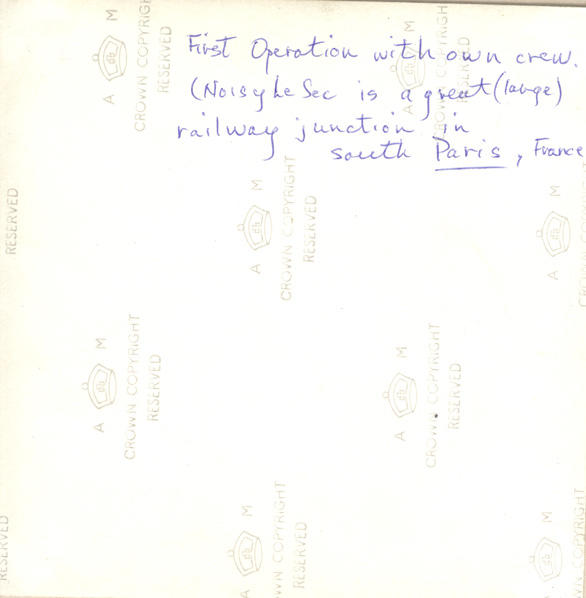 First Operation with own crew.
(Noisy Le Sec is a great (large)
railway junction in
south Paris, France
A M
CROWN COPYRIGHT
RESERVED
A M
CROWN COPYRIGHT
RESERVED
RESERVED
A M
CROWN COPYRIGHT
RESERVED
A M
A M
CROWN COPYRIGHT
RESERVED
A M
CROWN COPYRIGHT
RESERVED
RESERVED
A M
CROWN COPYRIGHT
RESERVED
A M
CROWN COPYRIGHT